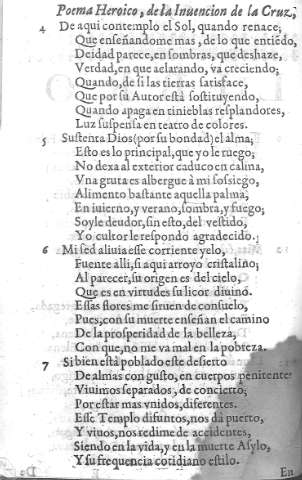 Poema Heroico, de la Inuencion de la Cruz,
4 De aqui contemplo el Sol, quando renace;
Que enseñandome mas, de lo que entiẽdo,
Deidad parece, en sombras, que deshaze,
Verdad, en que aclarando, va creciendo;
Quando, de si las tierras satisface,
Que por su Autor està sostituyendo,
Quando apaga en tinieblas resplandores,
Luz suspensa en teatro de colores.
5 Sustenta Dios (por su bondad) el alma;
Esto es lo principal, que yo le ruego;
No dexa al exterior caduco en calma,
Vna gruta es albergue à mi sossiego,
Alimento bastante aquella palma;
En iuierno, y verano, sombra, y fuego;
Soyle deudor, sin esto, del vestido,
Y o cultor le respondo agradecido.
6 Mi sed aliuia esse corriente yelo,
Fuente alli, si aqui arroyo cristalino;
Al parecer, su origen es del cielo,
Que es en virtudes su licor diuino.
Essas flores me siruen de consuelo,
Pues, con su muerte enseñan el camino
De la prosperidad de la belleza,
Con que, no me va mal en la pobreza.
7 Si bien està poblado este desierto
De almas con gusto, en cuerpos penitentes
Viuimos separados, de concierto;
Por estar mas vnidos, diferentes.
Esse Templo difuntos, nos dà puerto,
Y viuos, nos redime de accidentes,
Siendo en la vida, y en la muerte Asylo,
Y su frequencia cotidiano estilo.
En